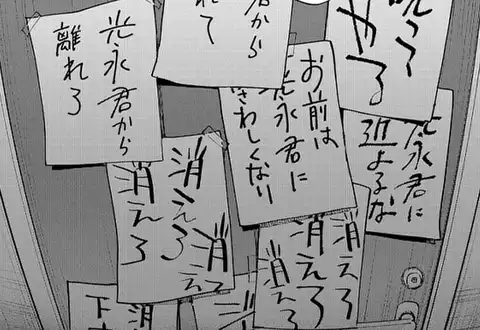 呪って
やる
君から
れて
光永君から
離れろ
お前は
光永君に
さわしくない
光永君に
近よるな
消えろ
消えろ
消えろ
消えろ
消えろ
消えろ
消
下